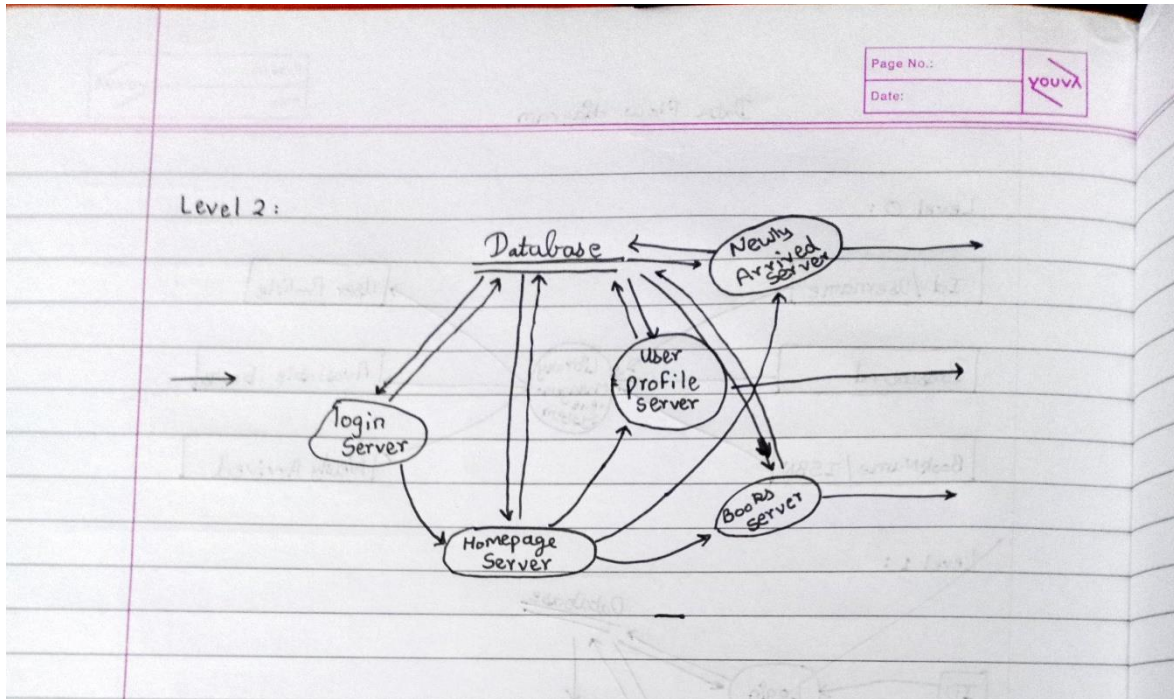 Page No.:
Date:
youva
Level 2 :
Database
Newly
Arrived
Server
User
profile
Server
login
Server
Books
Server
Homepage
Server